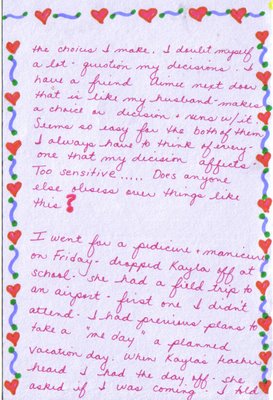 the choices I make. I doubt myself
a lot - question my decisions. I
have a friend Aimee next door
that is like my husband - makes
a choice or decision + runs w/it.
Seems so easy for the both of them
I always have to think of every-
one that my decision affects.
Too sensitive..... Does anyone
else obsess over things like
this?
I went for a pedicure + manicure
on Friday - dropped Kayla off at
school. she had a field trip to
an airport - first one I didn't
attend. I had previous plans to
take a "me day" a planned
vacation day. When Kayla's teacher
heard I had the day off - she
asked if I was coming. I told